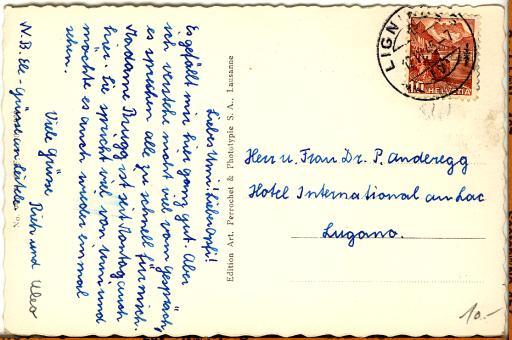 Liebs Mimi! Liebs Opfi!
Es gefällt mir hier ganz gut. Aber
ich verstehe nicht viel vom Gespräch,
es sprechen alle zu schnell für mich.
Madame Brugg ist seit Montag auch
hier. Sie spricht viel von Mimi und
möchte es auch wieder einmal
sehen.
Viele Grüsse
Pieti und Cleo
N.B. Ele-Grüsse
Edition Art. Perrochet & Phototypie S. A., Lausanne
LIGN
10
HELVETIA
Herr u. Frau Dr. P. Anderegg
Hotel International au Lac
Lugano.
10.-